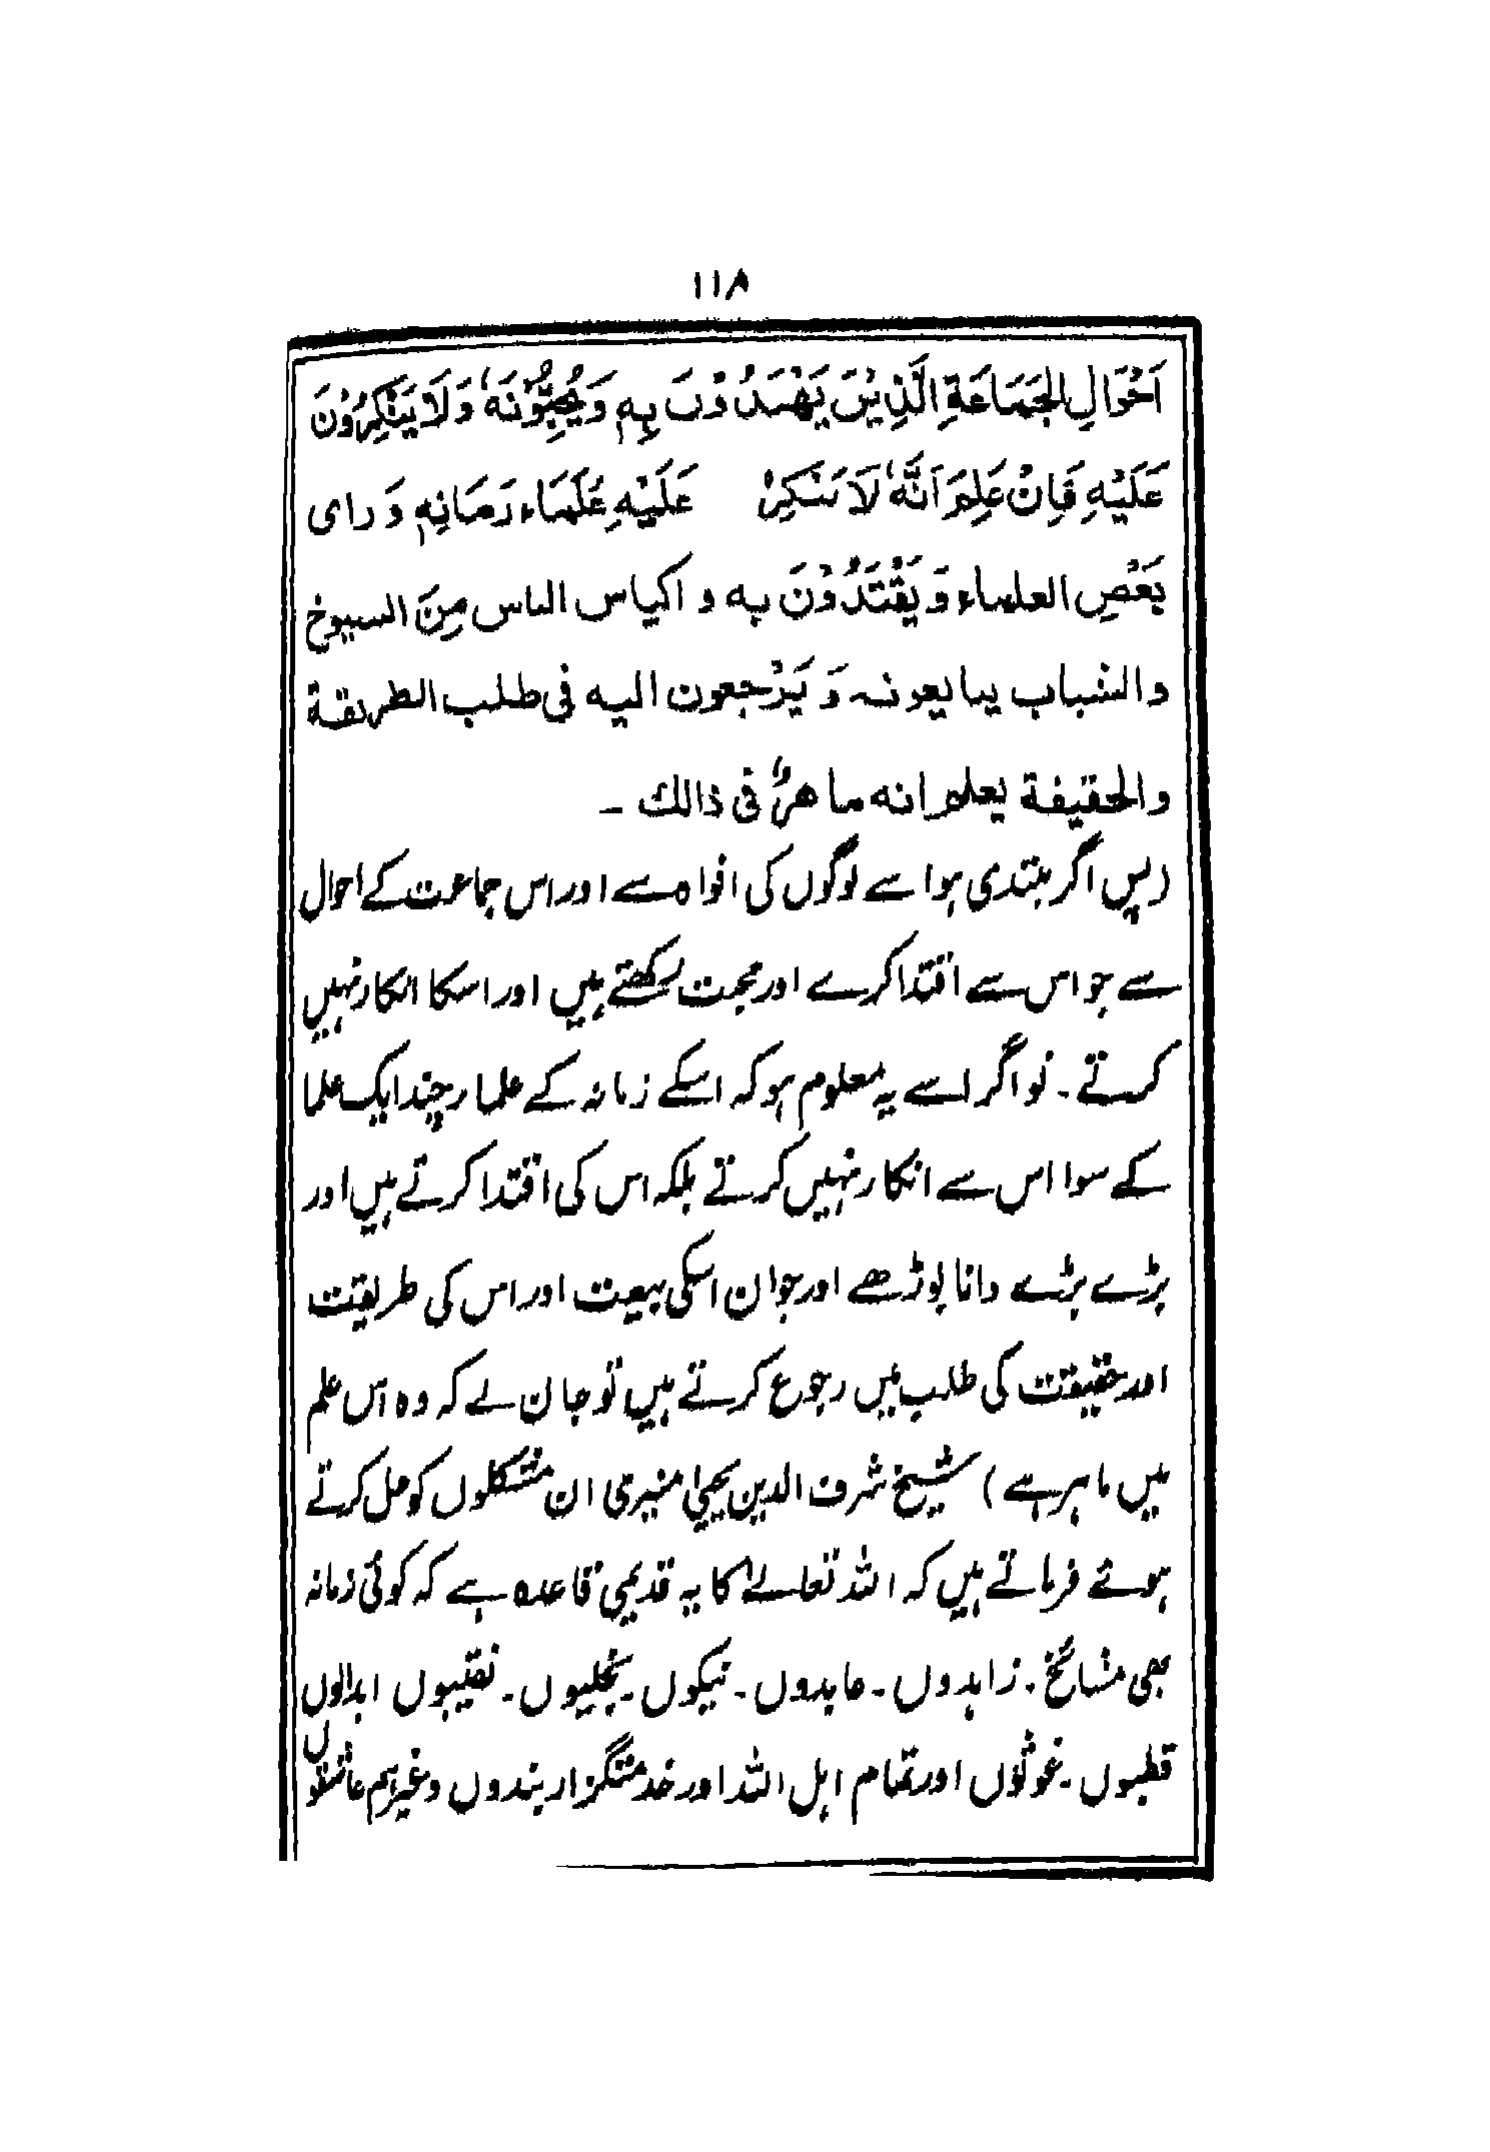 ۱۱۸
اَحْوَالِ الْجَمَاعَةِ الَّذِيْنَ يَهْتَدُوْنَ بِهٖ وَيُحِبُّوْنَهٗ وَلَا يَنْكِرُوْنَ
عَلَيْهِ فَاِنْ عَلِمَ اَنَّهٗ لَا يَنْكِرْ عَلَيْهِ عُلَمَاء زَمَانِهٖ وَ رای
بَعْضِ العلماء وَ يَقْتَدُوْنَ بِهٖ و اکیاس الناس مِنَ السیوخ
والشباب یبایعونہ وَ يَرْجعون الیہ فی طلب الطریقة
والحقیقة یعلم انه ماهرٌ فی ذالك ۔
(پس اگر مبتدی ہو اسے لوگوں کی افواہ سے اور اس جماعت کے احوال
سے جو اس سے اقتدا کرے اور محبت رکھتے ہیں اور اسکا انکار نہیں
کرتے ۔ تو اگر اسے یہ معلوم ہو کہ اسکے زمانہ کے علماء چند ایک علما
کے سوا اس سے انکار نہیں کرتے بلکہ اس کی اقتدا کرتے ہیں اور
بڑے بڑے دانا بوڑھے اور جوان اسکی بیعت اور اس کی طریقت
اور حقیقت کی طلب میں رجوع کرتے ہیں تو جان لے کہ وہ اس علم
میں ماہر ہے) شیخ شرف الدین یحییٰ منیری ان مشکلوں کو حل کرتے
ہوئے فرماتے ہیں کہ اللہ تعالےٰ کا یہ قدیمی قاعدہ ہے کہ کوئی زمانہ
بھی مشائخ ۔ زاہدوں ۔ عابدوں ۔ نیکوں ۔ نقیبوں ابدالوں
قطبوں ۔ غوثوں اور تمام اہل اللہ اور خدمتگزار بندوں وغیرہم عاشقوں